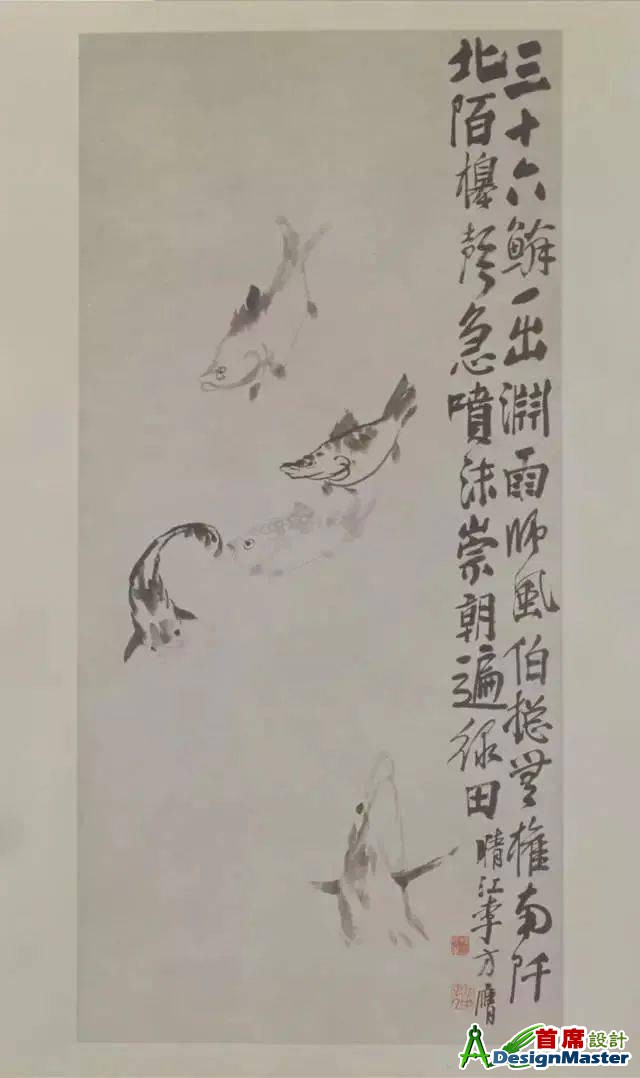 三十六鳞一出渊雨师風伯揔無權南阡
北陌槔聲急噴沫崇朝遍綠田
晴江李方膺
首席設計
DesignMaster